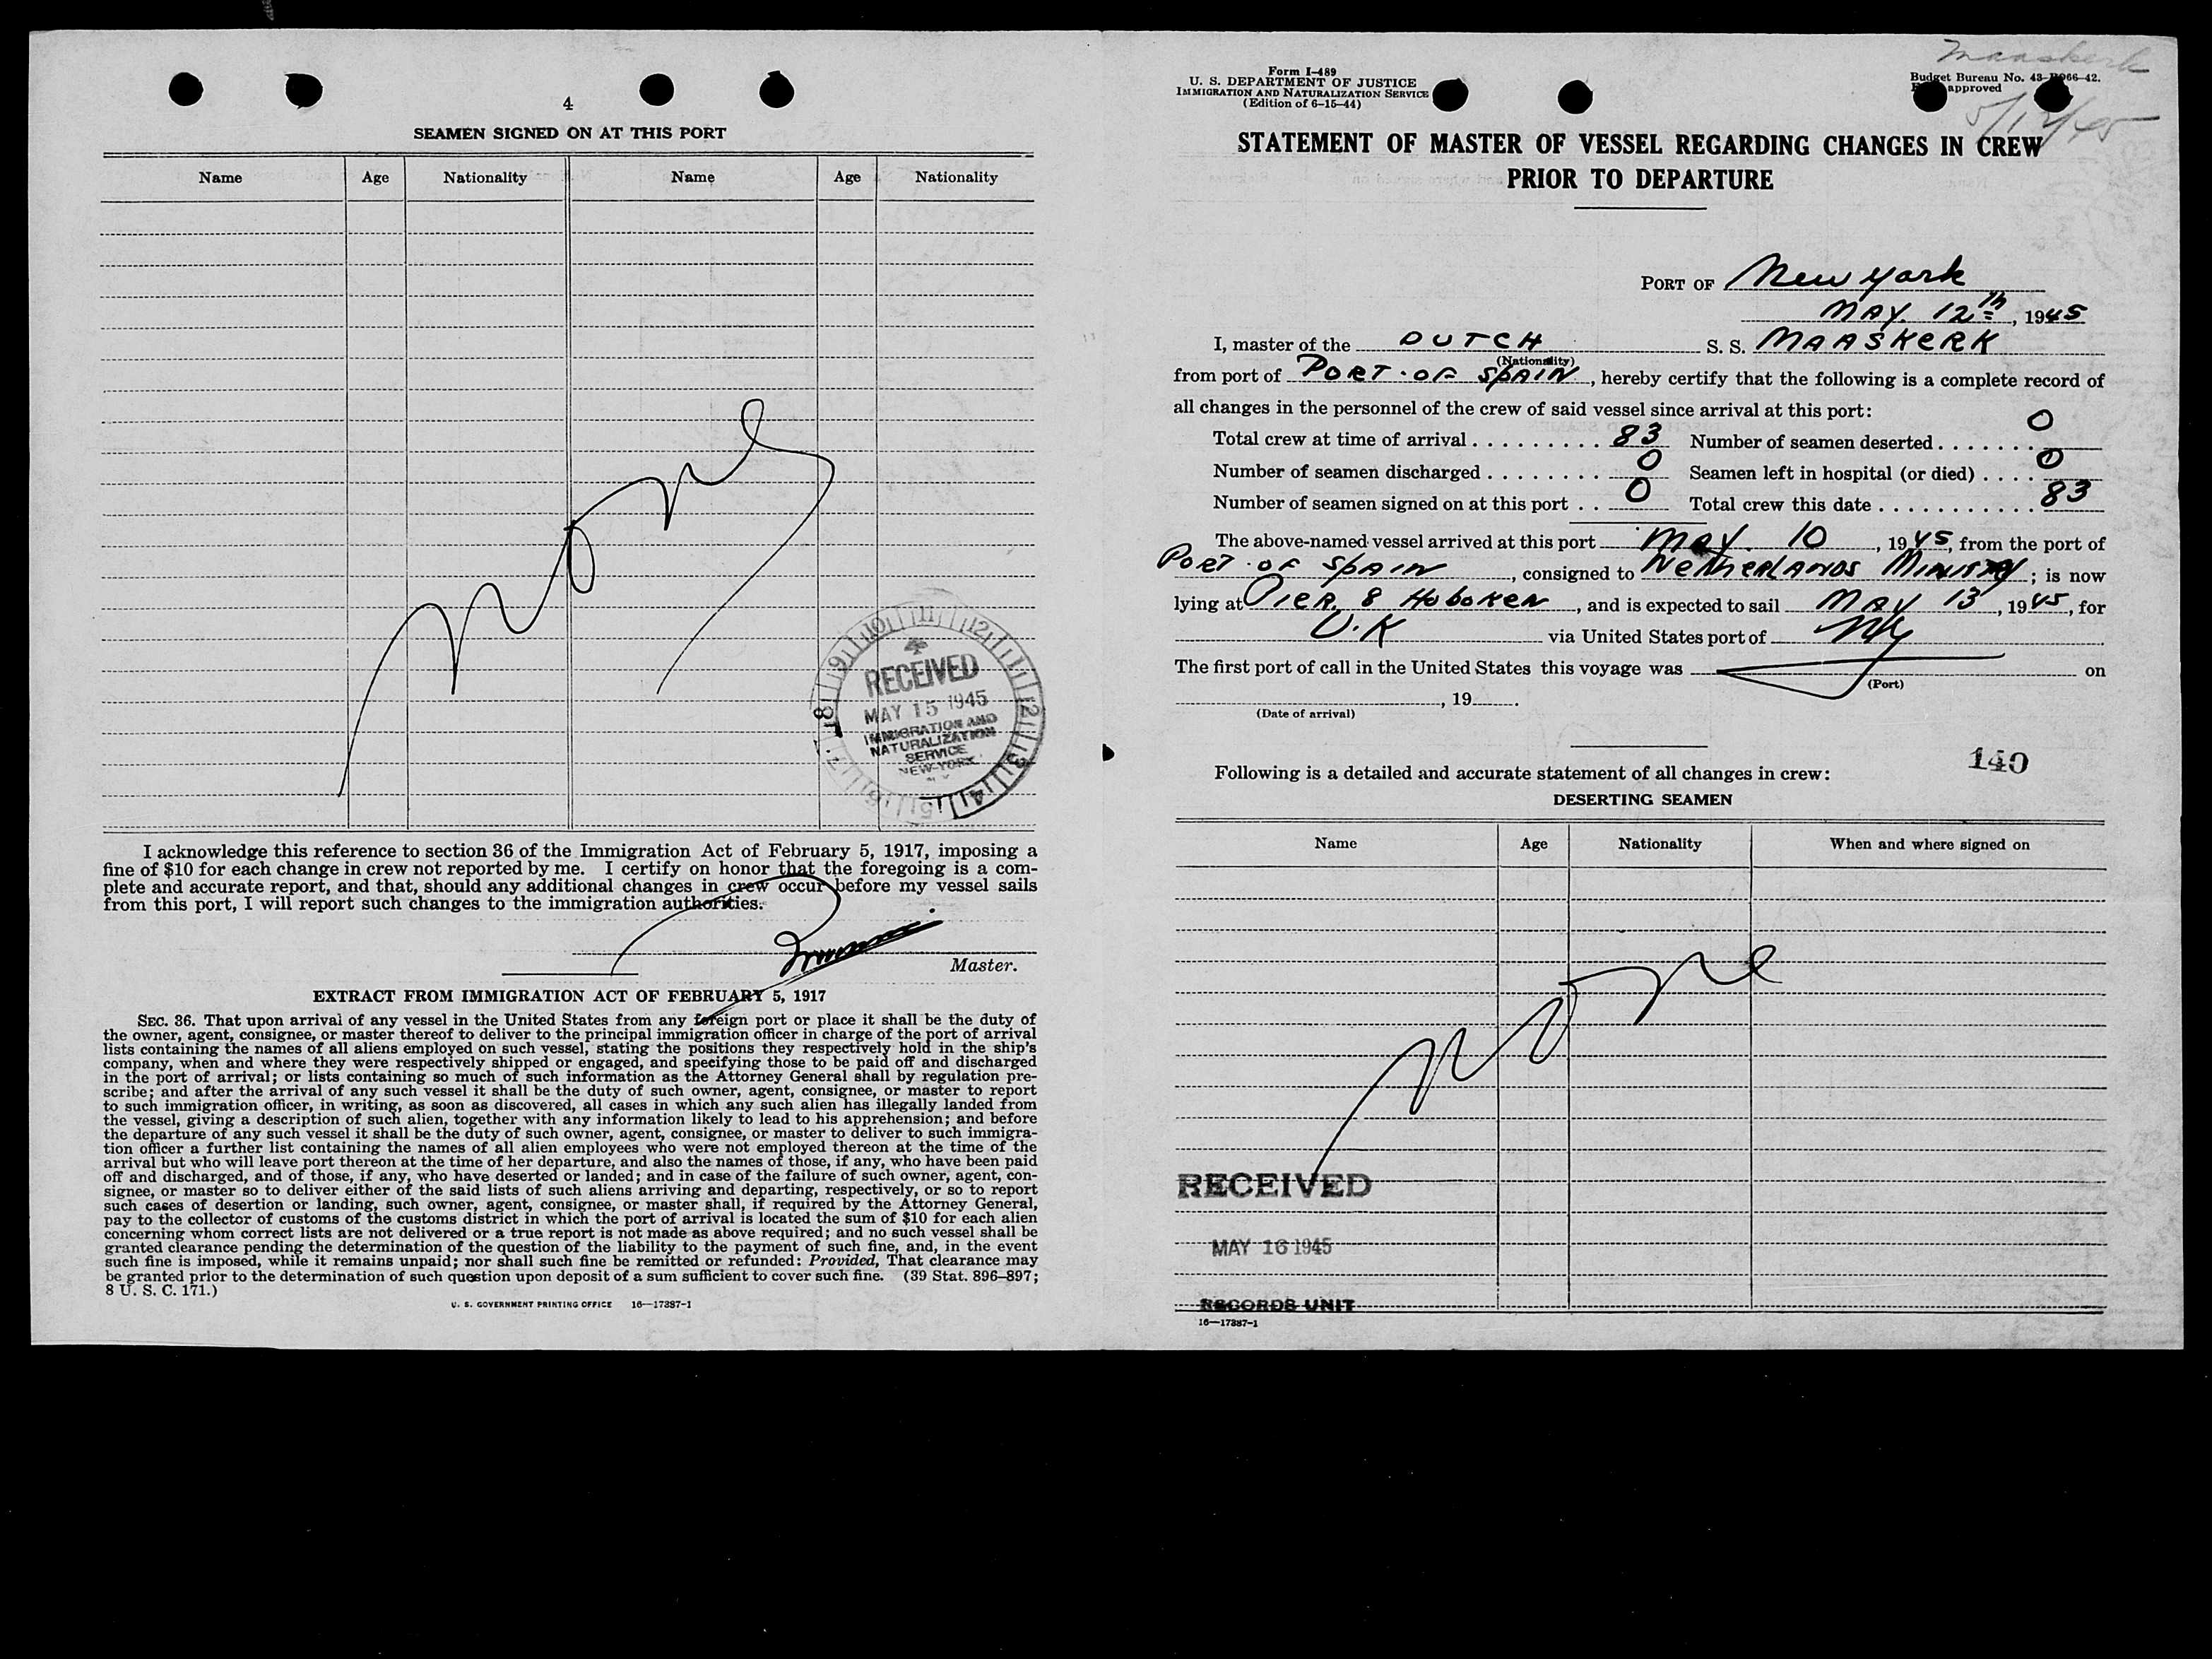 4
SEAMEN SIGNED ON AT THIS PORT
Name Age Nationality Name Age Nationality
None
RECEIVED
MAY 15 1945
IMMIGRATION AND
NATURALIZATION
SERVICE
NEW YORK
N Y
I acknowledge this reference to section 36 of the Immigration Act of February 5, 1917, imposing a
fine of $10 for each change in crew not reported by me. I certify on honor that the foregoing is a com-
plete and accurate report, and that, should any additional changes in crew occur before my vessel sails
from this port, I will report such changes to the immigration authorities.
Master.
EXTRACT FROM IMMIGRATION ACT OF FEBRUARY 5, 1917
SEC. 36. That upon arrival of any vessel in the United States from any foreign port or place it shall be the duty of
the owner, agent, consignee, or master thereof to deliver to the principal immigration officer in charge of the port of arrival
lists containing the names of all aliens employed on such vessel, stating the positions they respectively hold in the ship's
company, when and where they were respectively shipped or engaged, and specifying those to be paid off and discharged
in the port of arrival; or lists containing so much of such information as the Attorney General shall by regulation pre-
scribe; and after the arrival of any such vessel it shall be the duty of such owner, agent, consignee, or master to report
to such immigration officer, in writing, as soon as discovered, all cases in which any such alien has illegally landed from
the vessel, giving a description of such alien, together with any information likely to lead to his apprehension; and before
the departure of any such vessel it shall be the duty of such owner, agent, consignee, or master to deliver to such immigra-
tion officer a further list containing the names of all alien employees who were not employed thereon at the time of the
arrival but who will leave port thereon at the time of her departure, and also the names of those, if any, who have been paid
off and discharged, and of those, if any, who have deserted or landed; and in case of the failure of such owner, agent, con-
signee, or master so to deliver either of the said lists of such aliens arriving and departing, respectively, or so to report
such cases of desertion or landing, such owner, agent, consignee, or master shall, if required by the Attorney General,
pay to the collector of customs of the customs district in which the port of arrival is located the sum of $10 for each alien
concerning whom correct lists are not delivered or a true report is not made as above required; and no such vessel shall be
granted clearance pending the determination of the question of the liability to the payment of such fine, and, in the event
such fine is imposed, while it remains unpaid; nor shall such fine be remitted or refunded: Provided, That clearance may
be granted prior to the determination of such question upon deposit of a sum sufficient to cover such fine. (39 Stat. 896–897;
8 U. S. C. 171.)
U. S. GOVERNMENT PRINTING OFFICE 16—17387-1
Form I-489
U. S. DEPARTMENT OF JUSTICE
IMMIGRATION AND NATURALIZATION SERVICE
(Edition of 6-15-44)
Maaskerk
Budget Bureau No. 43- 066-42.
approved
5/12/45
STATEMENT OF MASTER OF VESSEL REGARDING CHANGES IN CREW
PRIOR TO DEPARTURE
PORT OF New York
MAY. 12th, 1945
I, master of the DUTCH S. S. MAASKERK
(Nationality)
from port of PORT.OF SPAIN, hereby certify that the following is a complete record of
all changes in the personnel of the crew of said vessel since arrival at this port:
Total crew at time of arrival . . . . . . . . . 83 Number of seamen deserted . . . . . . . 0
Number of seamen discharged . . . . . . . . 0 Seamen left in hospital (or died) . . . . 0
Number of seamen signed on at this port . . 0 Total crew this date . . . . . . . . . . . 83
The above-named vessel arrived at this port MAY. 10, 1945, from the port of
PORT OF SPAIN, consigned to NETHERLANDS MINISTRY; is now
lying at PIER 8 HOBOKEN, and is expected to sail MAY 13, 1945, for
U.K via United States port of NY
The first port of call in the United States this voyage was on
(Port)
, 19 .
(Date of arrival)
140
Following is a detailed and accurate statement of all changes in crew:
DESERTING SEAMEN
Name Age Nationality When and where signed on
None
RECEIVED
MAY 16 1945
RECORDS UNIT
16—17387-1